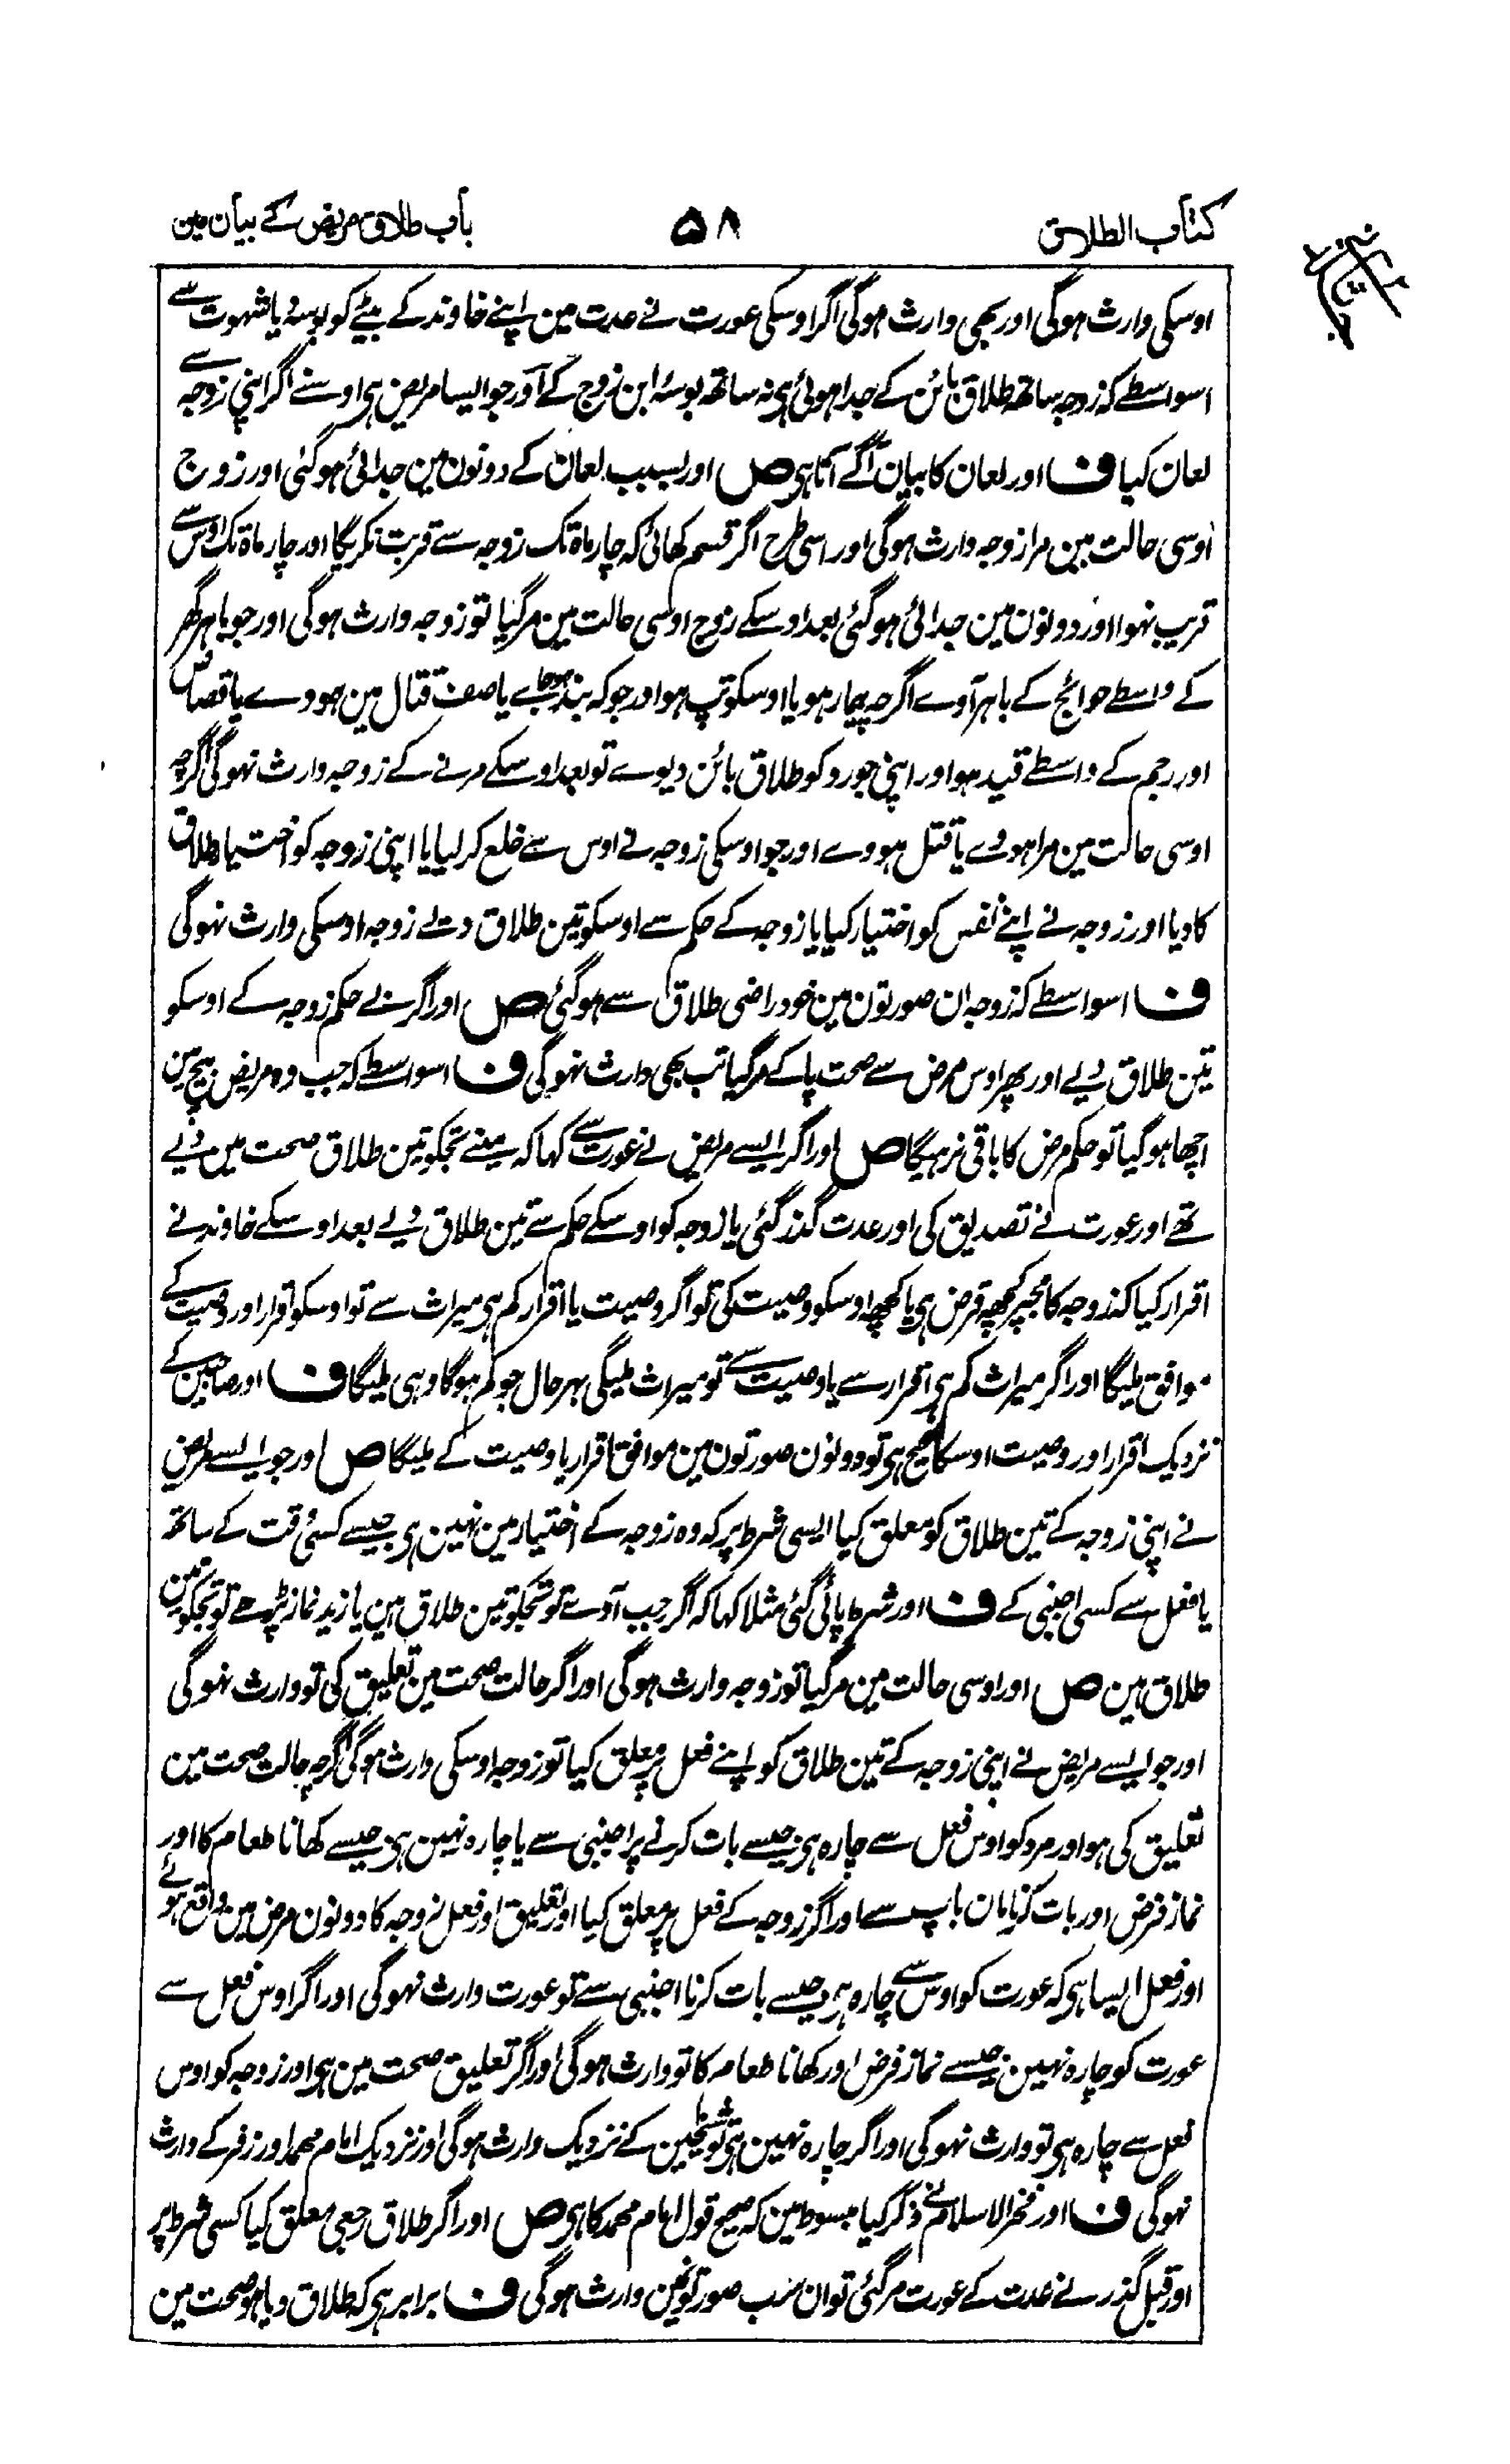 کتاب الطلاق
۵۸
باب طلاق مریض کے بیان مین
اوسکی وارث ہوگی اور بھی وارث ہوگی اگر اوسکی عورت نے عدت مین اپنے خاوند کے بیٹے کو بوسہ یا شہوت سے
اسواسطے کہ زوجہ ساتھ طلاق بائن کے جدا ہوئی ہی نہ ساتھ بوسۂ ابن زوج کے آور جو ایسا مریض ہی اوسنے اگر اپنی زوجہ سے
لعان کیا ف اور لعان کا بیان آگے آتا ہی ص اور بسبب لعان کے دونون مین جدائی ہوگئی اور زوج
اوسی حالت مین مرا زوجہ وارث ہوگی اور اسی طرح اگر قسم کھائی کہ چار ماہ تک زوجہ سے قربت نکریگا اور چار ماہ تک اوس سے
قریب نہوا اور دونون مین جدائی ہوگئی بعد اوسکے زوج اوسی حالت مین مرگیا تو زوجہ وارث ہوگی اور جو باہر گھر
کے واسطے حوائج کے باہر آوے اگرچہ بیمار ہو یا اوسکو تپ ہو اور جو کہ بند ہو جاے یا صف قتال مین ہووے یا قصاص
اور رجم کے واسطے قید ہو اور اپنی جورو کو طلاق بائن دیوے تو بعد اوسکے مرنے کے زوجہ وارث نہوگی اگرچہ
اوسی حالت مین مرا ہووے یا قتل ہووے اور جو اوسکی زوجہ نے اوس سے خلع کر لیا یا اپنی زوجہ کو اختیار طلاق
کا دیا اور زوجہ نے اپنے نفس کو اختیار کیا یا زوجہ کے حکم سے اوسکو تین طلاق دے زوجہ اوسکی وارث نہوگی
ف اسواسطے کہ زوجہ ان صورتون مین خود راضی طلاق سے ہوگئی ص اور اگر بے حکم زوجہ کے اوسکو
تین طلاق دیے اور پھر اوس مرض سے صحت پا کے مرگیا تب بھی وارث نہوگی ف اسواسطے کہ جب وہ مریض بیچ مین
اچھا ہوگیا تو حکم مرض کا باقی نرہیگا ص اور اگر ایسے مریض نے عورت سے کہا کہ مینے تجکو تین طلاق صحت مین دیے
تھے اور عورت نے تصدیق کی اور عدت گذر گئی یا زوجہ کو اوسکے حکم سے تین طلاق دیے بعد اوسکے خاوند نے
اقرار کیا کہ زوجہ کا مجپر کچھ قرض ہی یا کچھ اوسکو وصیت کی تو اگر وصیت یا اقرار کم ہی میراث سے تو اوسکو اقرار اور وصیت کے
موافق ملیگا اور اگر میراث کم ہی اقرار سے یا وصیت سے تو میراث ملیگی بہر حال جو کم ہوگا وہی ملیگا ف اور صاحبین کے
نزدیک اقرار اور وصیت اوسکا صحیح ہی تو دونون صورتون مین موافق اقرار یا وصیت کے ملیگا ص اور جو ایسے مریض
نے اپنی زوجہ کے تین طلاق کو معلق کیا ایسی شرط پر کہ وہ زوجہ کے اختیار مین نہین ہی جیسے کسی وقت کے ساتھ
یا فعل سے کسی اجنبی کے ف اور شرط پائی گئی مثلا کہا کہ اگر جب آوے تو تجکو تین طلاق ہین یا زید نماز پڑھے تو تجکو تین
طلاق ہین ص اور اوسی حالت مین مرگیا تو زوجہ وارث ہوگی اور اگر حالت صحت مین تعلیق کی تو وارث نہوگی
اور جو ایسے مریض نے اپنی زوجہ کے تین طلاق کو اپنے فعل پر معلق کیا تو زوجہ اوسکی وارث ہوگی اگرچہ حالت صحت مین
تعلیق کی ہو اور مرد کو اوس فعل سے چارہ ہی جیسے بات کرنے پر اجنبی سے یا چارہ نہین ہی جیسے کھانا طعام کا اور
نماز فرض اور بات کرنا مان باپ سے اور اگر زوجہ کے فعل پر معلق کیا اور تعلیق اور فعل زوجہ کا دونون مرض مین واقع ہوئے
اور فعل ایسا ہی کہ عورت کو اوس سے چارہ ہی جیسے بات کرنا اجنبی سے تو عورت وارث نہوگی اور اگر اوس فعل سے
عورت کو چارہ نہین جیسے نماز فرض اور کھانا طعام کا تو وارث ہوگی اور اگر تعلیق صحت مین ہو اور زوجہ کو اوس
فعل سے چارہ ہی تو وارث نہوگی اور اگر چارہ نہین ہی تو شیخین کے نزدیک وارث ہوگی اور نزدیک امام محمد اور زفر کے وارث
نہوگی ف اور فخر الاسلام نے ذکر کیا مبسوط مین کہ صحیح قول امام محمد کا ہی ص اور اگر طلاق رجعی معلق کیا کسی شرط پر
اور قبل گذرنے عدت کے عورت مرگئی تو ان سب صورتونمین وارث ہوگی ف برابر ہی کہ طلاق دیا ہو صحت مین